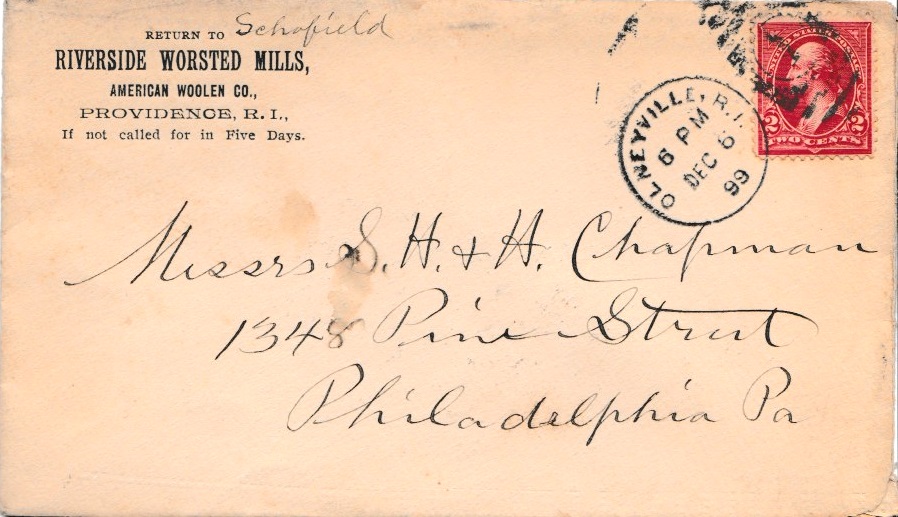 RETURN TO Schofield
RIVERSIDE WORSTED MILLS,
AMERICAN WOOLEN CO.,
PROVIDENCE, R. I.,
If not called for in Five Days.
OLNEYVILLE, R.I.
6 PM
DEC 6
99
UNITED STATES POSTAGE
2 2
TWO CENTS
Messrs S. H. & H. Chapman
1348 Pine Street
Philadelphia Pa